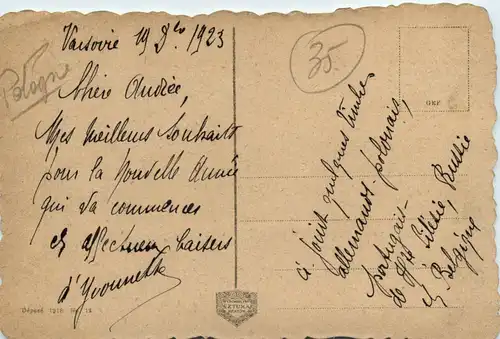 Varsovie 19 Dbre 1923
Pologne
35
Chère Andrée,
Mes meilleurs Souhaits
pour la Nouvelle Année
qui va commencer
et affectueux baisers
d'Yvonnette
ci joint quelques timbres
allemands, polonais,
portugais,
de Hte Silésie, Russie
et Belgique
Déposé 1916 No 13